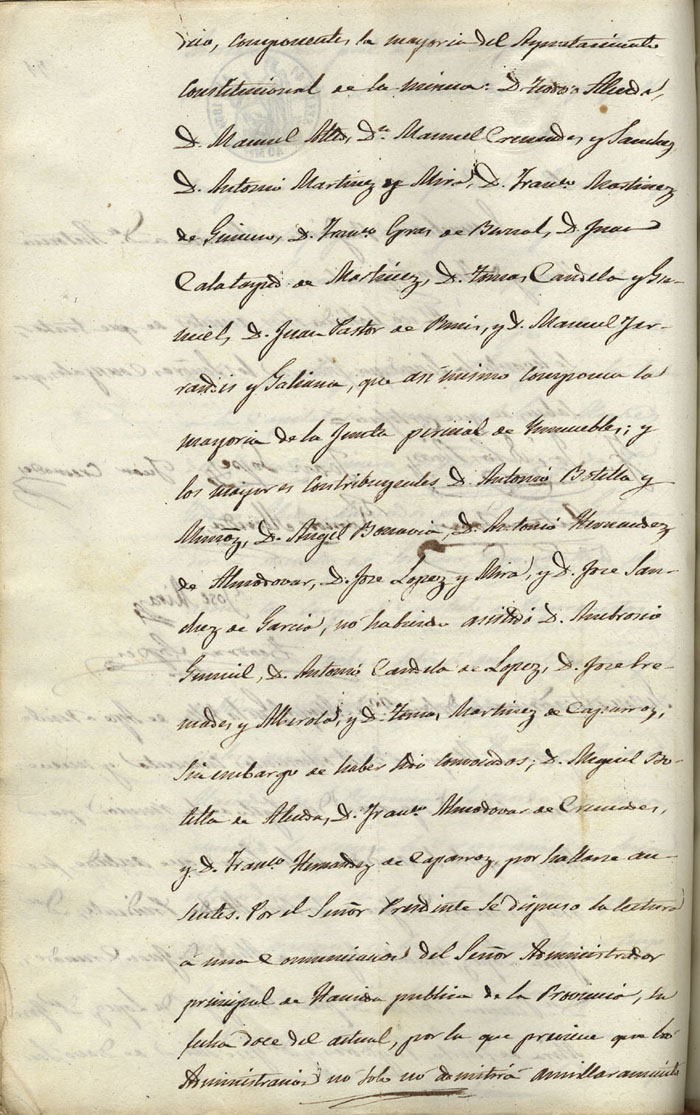 dico, componentes la mayoria del Ayuntamiento
Constitucional de la misma: D. Isidoro Alenda,
D. Manuel Alted, Dn. Manuel Cremades y Sanchez
D. Antonio Martinez y Mira, D. Franco. Martinez
de Gimeno, D. Franco. Gras de Bernal, D. Juan
Calatayud de Martinez, D. Tomas Candela y Gu-
miel, D. Juan Pastor de Amis, y D. Manuel Fer-
randis y Galiana, que asi mismo componen la
mayoria de la Junta pericial de Ynmuebles; y
los mayores contribuyentes D. Antonio Botella y
Muñoz, D. Angel Bonavia, D. Antonio Hernandez
de Almodovar, D. Jose Lopez y Mira, y D. Jose San-
chez de Garcia, no habiendo asistido D. Ambrosio
Gumiel, D. Antonio Candela de Lopez, D. Jose Cre-
mades y Alberola, y D. Tomas Martinez de Caparroz,
sin embargo de haber sido convocados; D. Miguel Bo-
tella de Alenda, D. Franco. Almodovar de Cremades,
y D. Franco. Hernandez de Caparroz, por hallarse au-
sentes. Por el Señor Presidente se dispuso la lectura
á una comunicacion del Señor Administrador
principal de Hacienda publica de la Provincia, su
fecha doce del actual, por la que previene que la
Administracion no solo no admitirá amillaramiento